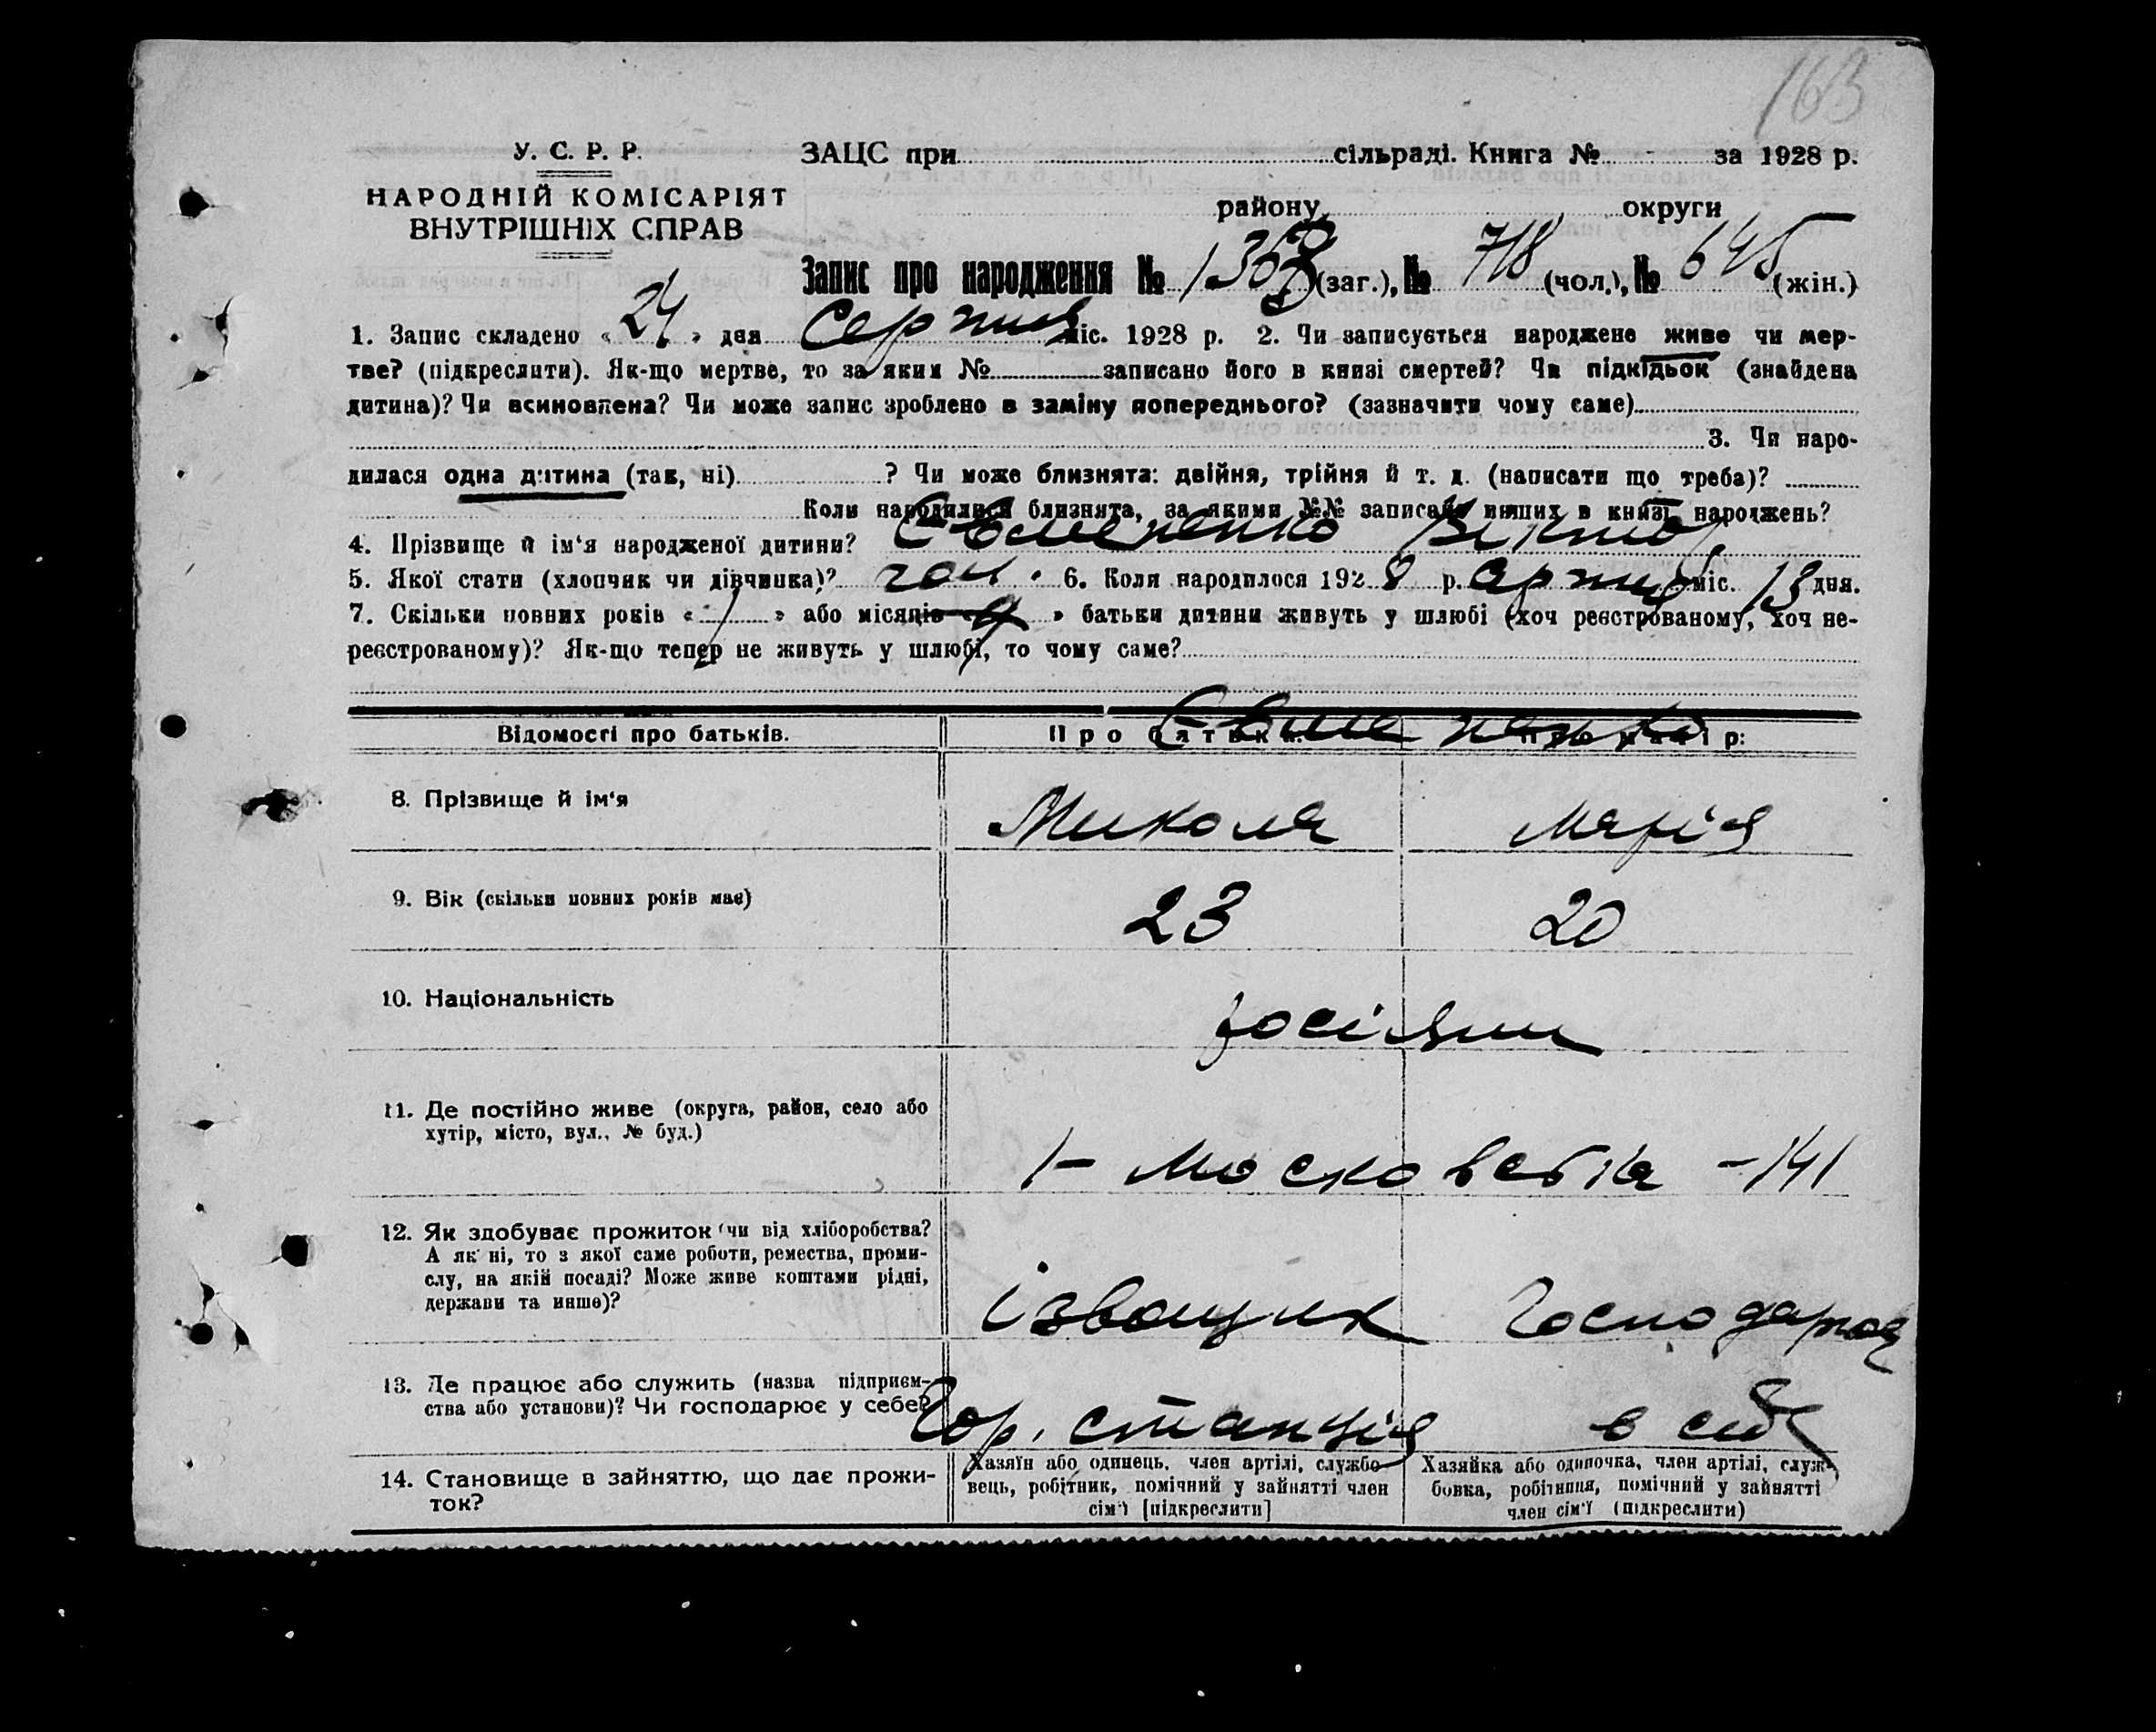 163
У. С. Р. Р.
НАРОДНІЙ КОМІСАРІЯТ
ВНУТРІШНІХ СПРАВ
ЗАЦС при сільраді. Книга № - за 1928 р.
району, округи
Запис про народження № 1363 (заг.), № 718 (чол.), № 645 (жін.)
1. Запис складено « 24 » дня Серпня міс. 1928 р. 2. Чи записується народжене живе чи мер-
тве? (підкреслити). Як-що мертве, то за яким № записано його в книзі смертей? Чи підкідьок (знайдена
дитина)? Чи всиновлена? Чи може запис зроблено в заміну попереднього? (зазначити чому саме)
3. Чи наро-
дилася одна дитина (так, ні) ? Чи може близнята: двійня, трійня й т. д. (написати що треба)?
Коли народилися близнята, за якими №№ записано инших в книзі народжень?
4. Прізвище й ім‘я народженої дитини? Євмененко Віктор
5. Якої стати (хлопчик чи дівчинка)? чол. 6. Коли народилося 1928 р. Серпня міс. 13 дня.
7. Скільки повних років « 1 » або місяців « » батьки дитини живуть у шлюбі (хоч реєстрованому, хоч не-
реєстрованому)? Як-що тепер не живуть у шлюбі, то чому саме?
Відомості про батьків.
Про батька: Про матір:
8. Прізвище й ім‘я
Микола Марія
9. Вік (скільки повних років має)
23 20
10. Національність
росіяни
11. Де постійно живе (округа, район, село або
хутір, місто, вул., № буд.)
1- Московська - 141
12. Як здобуває прожиток (чи від хліборобства?
А як ні, то з якої саме роботи, ремества, проми-
слу, на якій посаді? Може живе коштами рідні,
держави та инше)?
ізвощик Господарює
13. Де працює або служить (назва підприєм-
ства або установи)? Чи господарює у себе?
Гор. станція в себе
14. Становище в зайняттю, що дає прожи-
ток?
Хазяїн або одинець, член артілі, службо-
вець, робітник, помічний у зайнятті член
сім‘ї [підкреслити]
Хазяйка або одиночка, член артілі, служ-
бовка, робітниця, помічний у зайнятті
член сім‘ї (підкреслити)